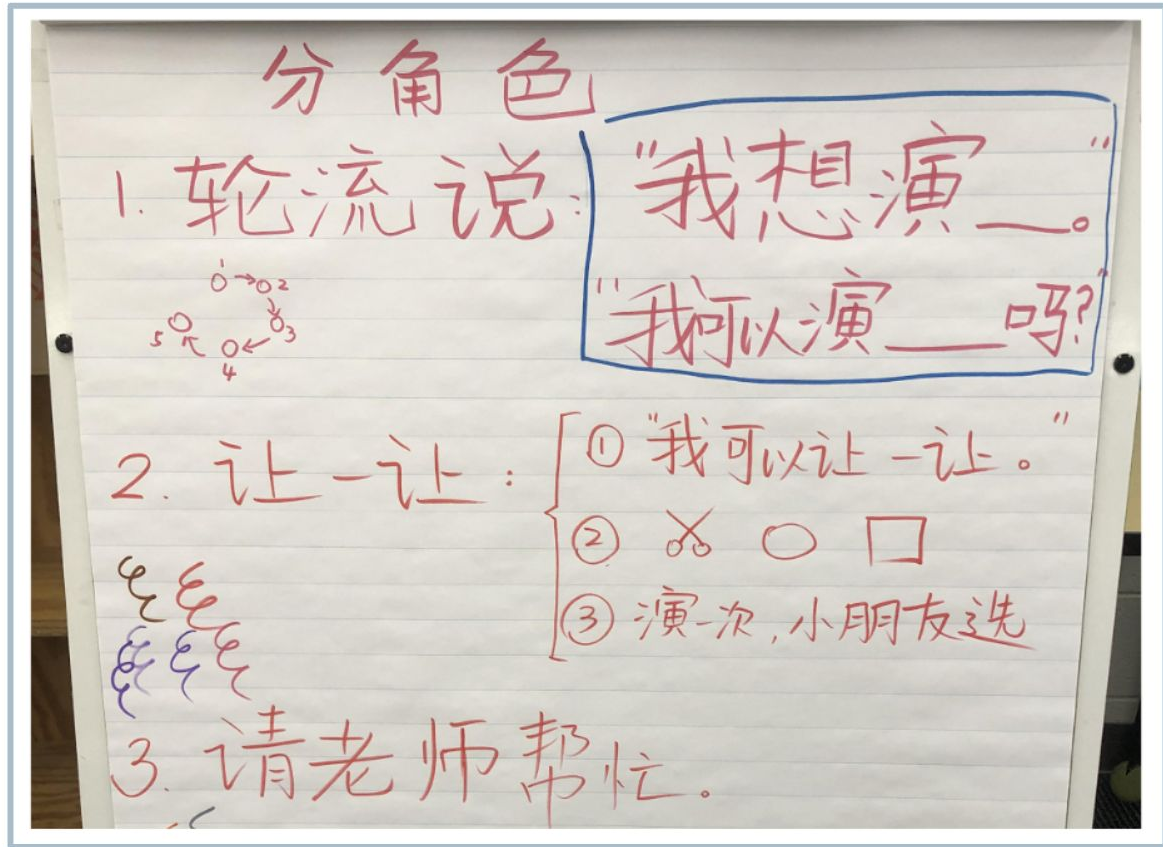 分角色
1. 轮流说: "我想演__。"
"我可以演___吗?"
1 2 3 4 5
2. 让一让:
① "我可以让一让。"
②
③ 演一次,小朋友选
3. 请老师帮忙。